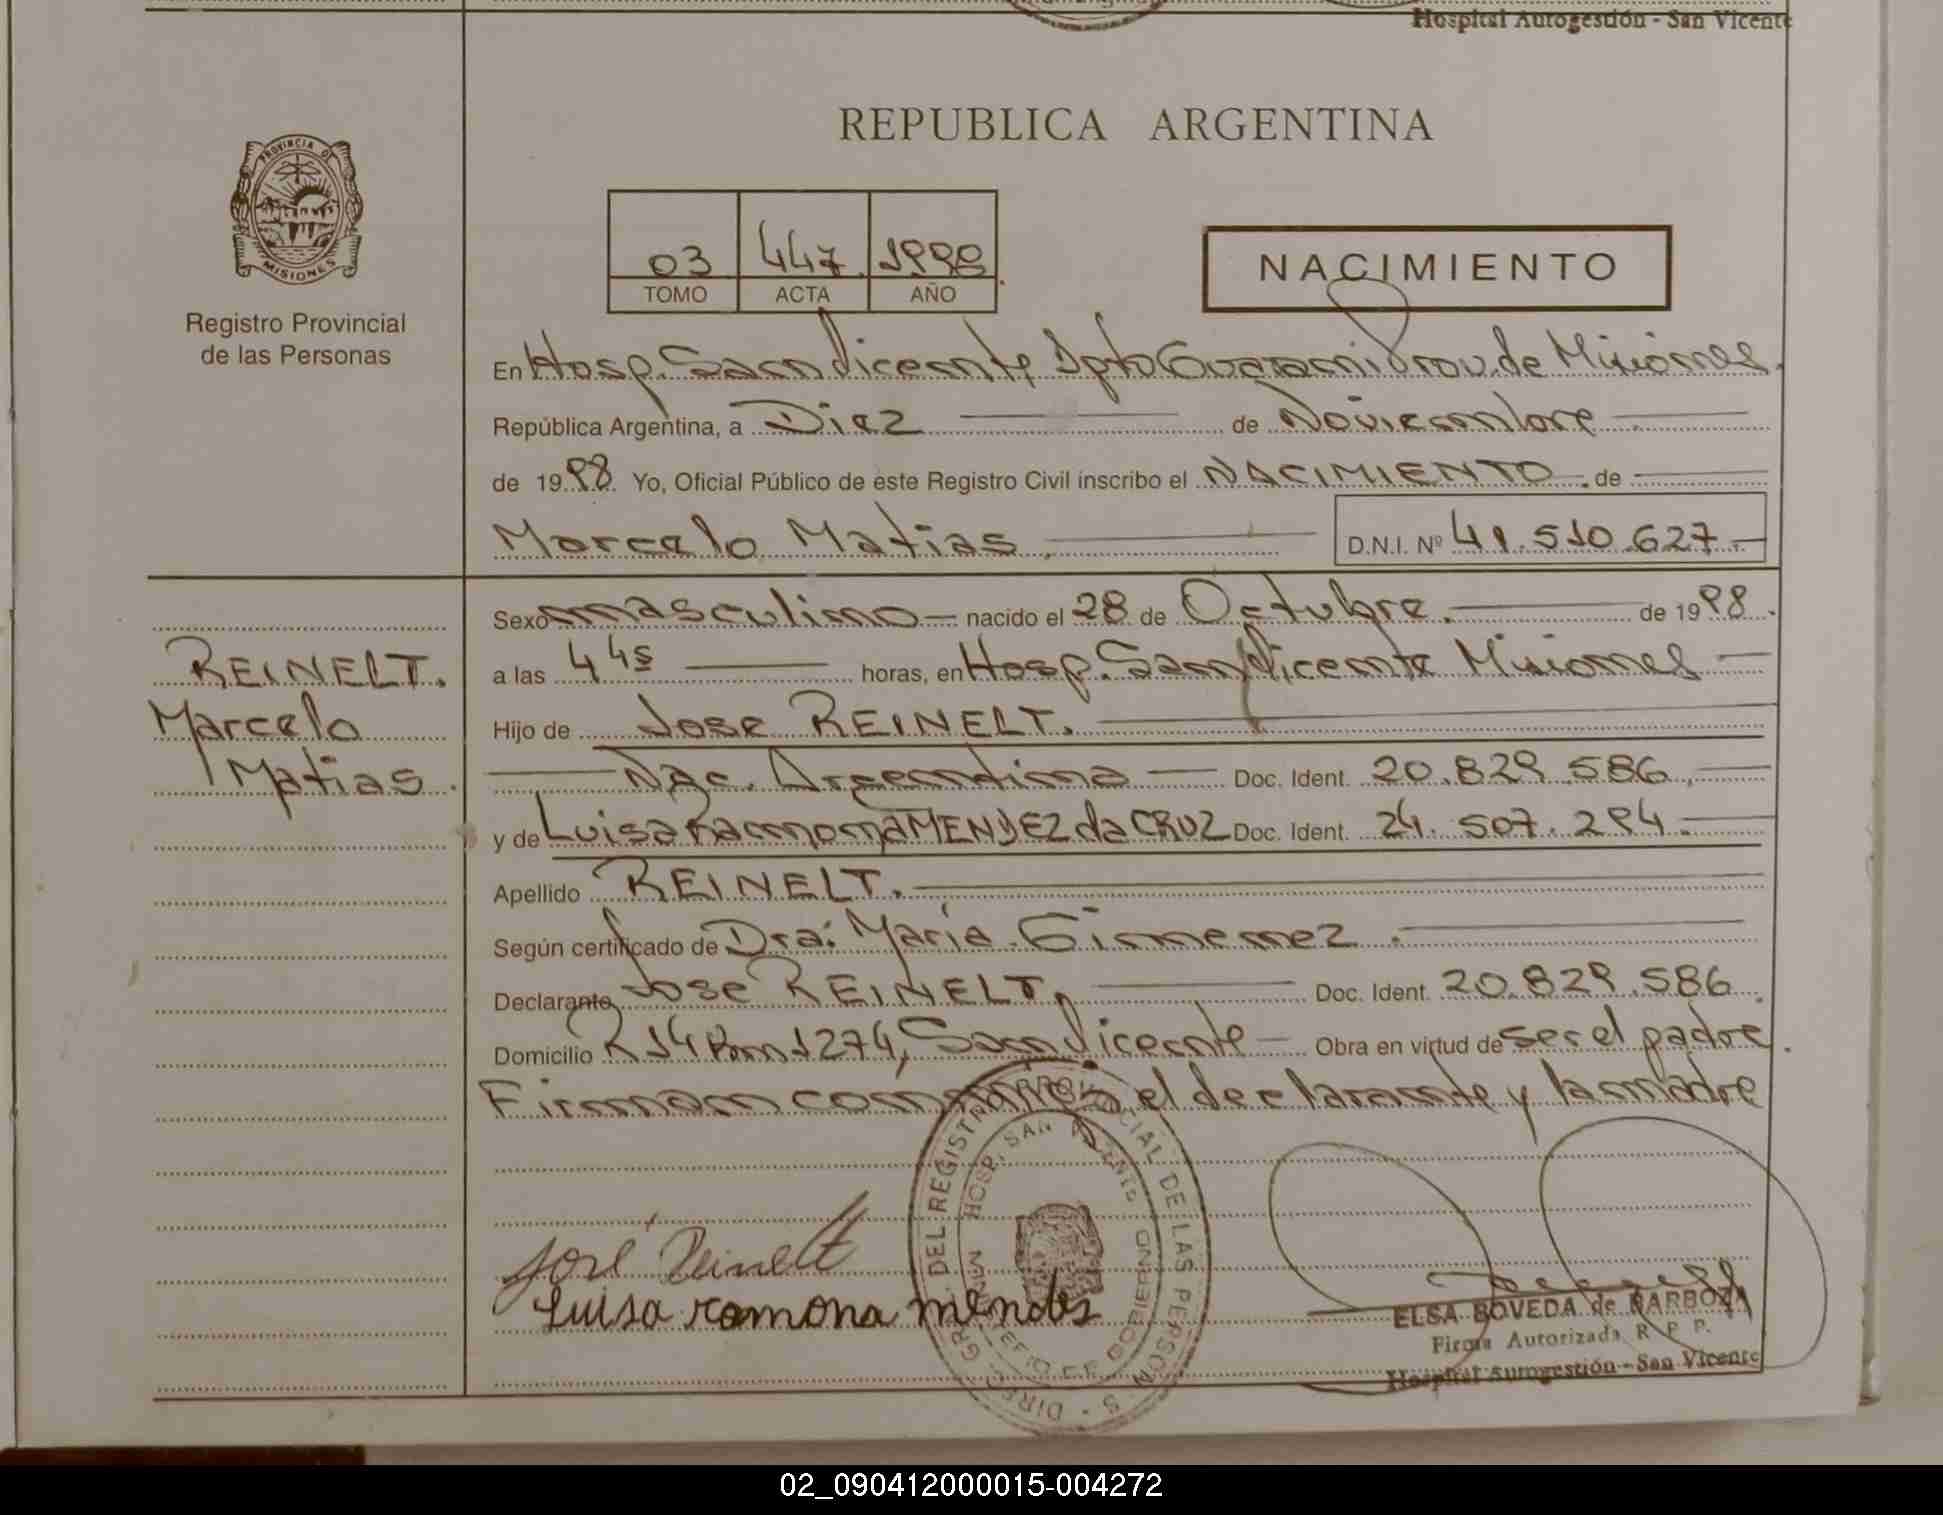 Hospital Autogestión - San Vicente
PROVINCIA DE
MISIONES
Registro Provincial
de las Personas
REPUBLICA ARGENTINA
03 447 1998
TOMO ACTA AÑO
NACIMIENTO
En Hosp. San Vicente Dpto Guarani Prov. de Misiones.
República Argentina, a Diez de Noviembre
de 1998 Yo, Oficial Público de este Registro Civil inscribo el NACIMIENTO de
Marcelo Matias D.N.I. Nº 41.510.627
REINELT.
Marcelo
Matias.
Sexo masculino nacido el 28 de Octubre. de 1998.
a las 4 45 horas, en Hosp. San Vicente Misiones
Hijo de Jose REINELT.
Nac. Argentina Doc. Ident. 20.829.586
y de Luisa Ramona MENDEZ da CRUZ Doc. Ident. 24.507.294
Apellido REINELT.
Según certificado de Dra: Maria Gimenez.
Declarante Jose REINELT, Doc. Ident. 20.829.586.
Domicilio R 14 Km 1274, San Vicente Obra en virtud de ser el padre.
Firman conmigo el declarante y la madre
José Reinelt
Luisa ramona mendes
HOSP. SAN VICENTE
ELSA BOVEDA de BARBOZA
Firma Autorizada R. P. P.
Hospital Autogestión - San Vicente
02_090412000015-004272